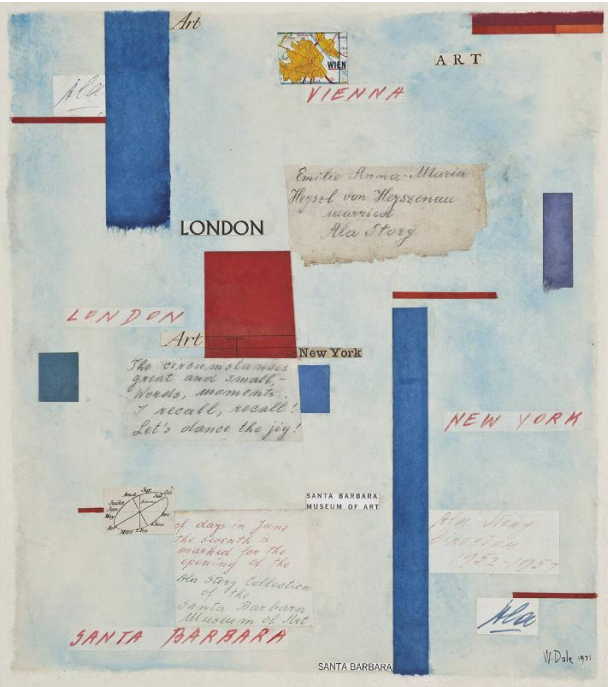 Art
WIEN
ART
VIENNA
Ala
Emilie Anna-Maria
Heysel von Heyszenau
married
Ala Story
LONDON
LONDON
Art
New York
The circumstances
great and small,-
Words, moments..
I recall, recall!
Let's dance the jig!
NEW YORK
SANTA BARBARA
MUSEUM OF ART
of days in June
the seventh is
marked for the
opening of the
Ala Story Collection
of the
Santa Barbara
Museum of Art
Ala Story
Director
1952-1957
Ala
SANTA BARBARA
SANTA BARBARA
W. Dole 1971